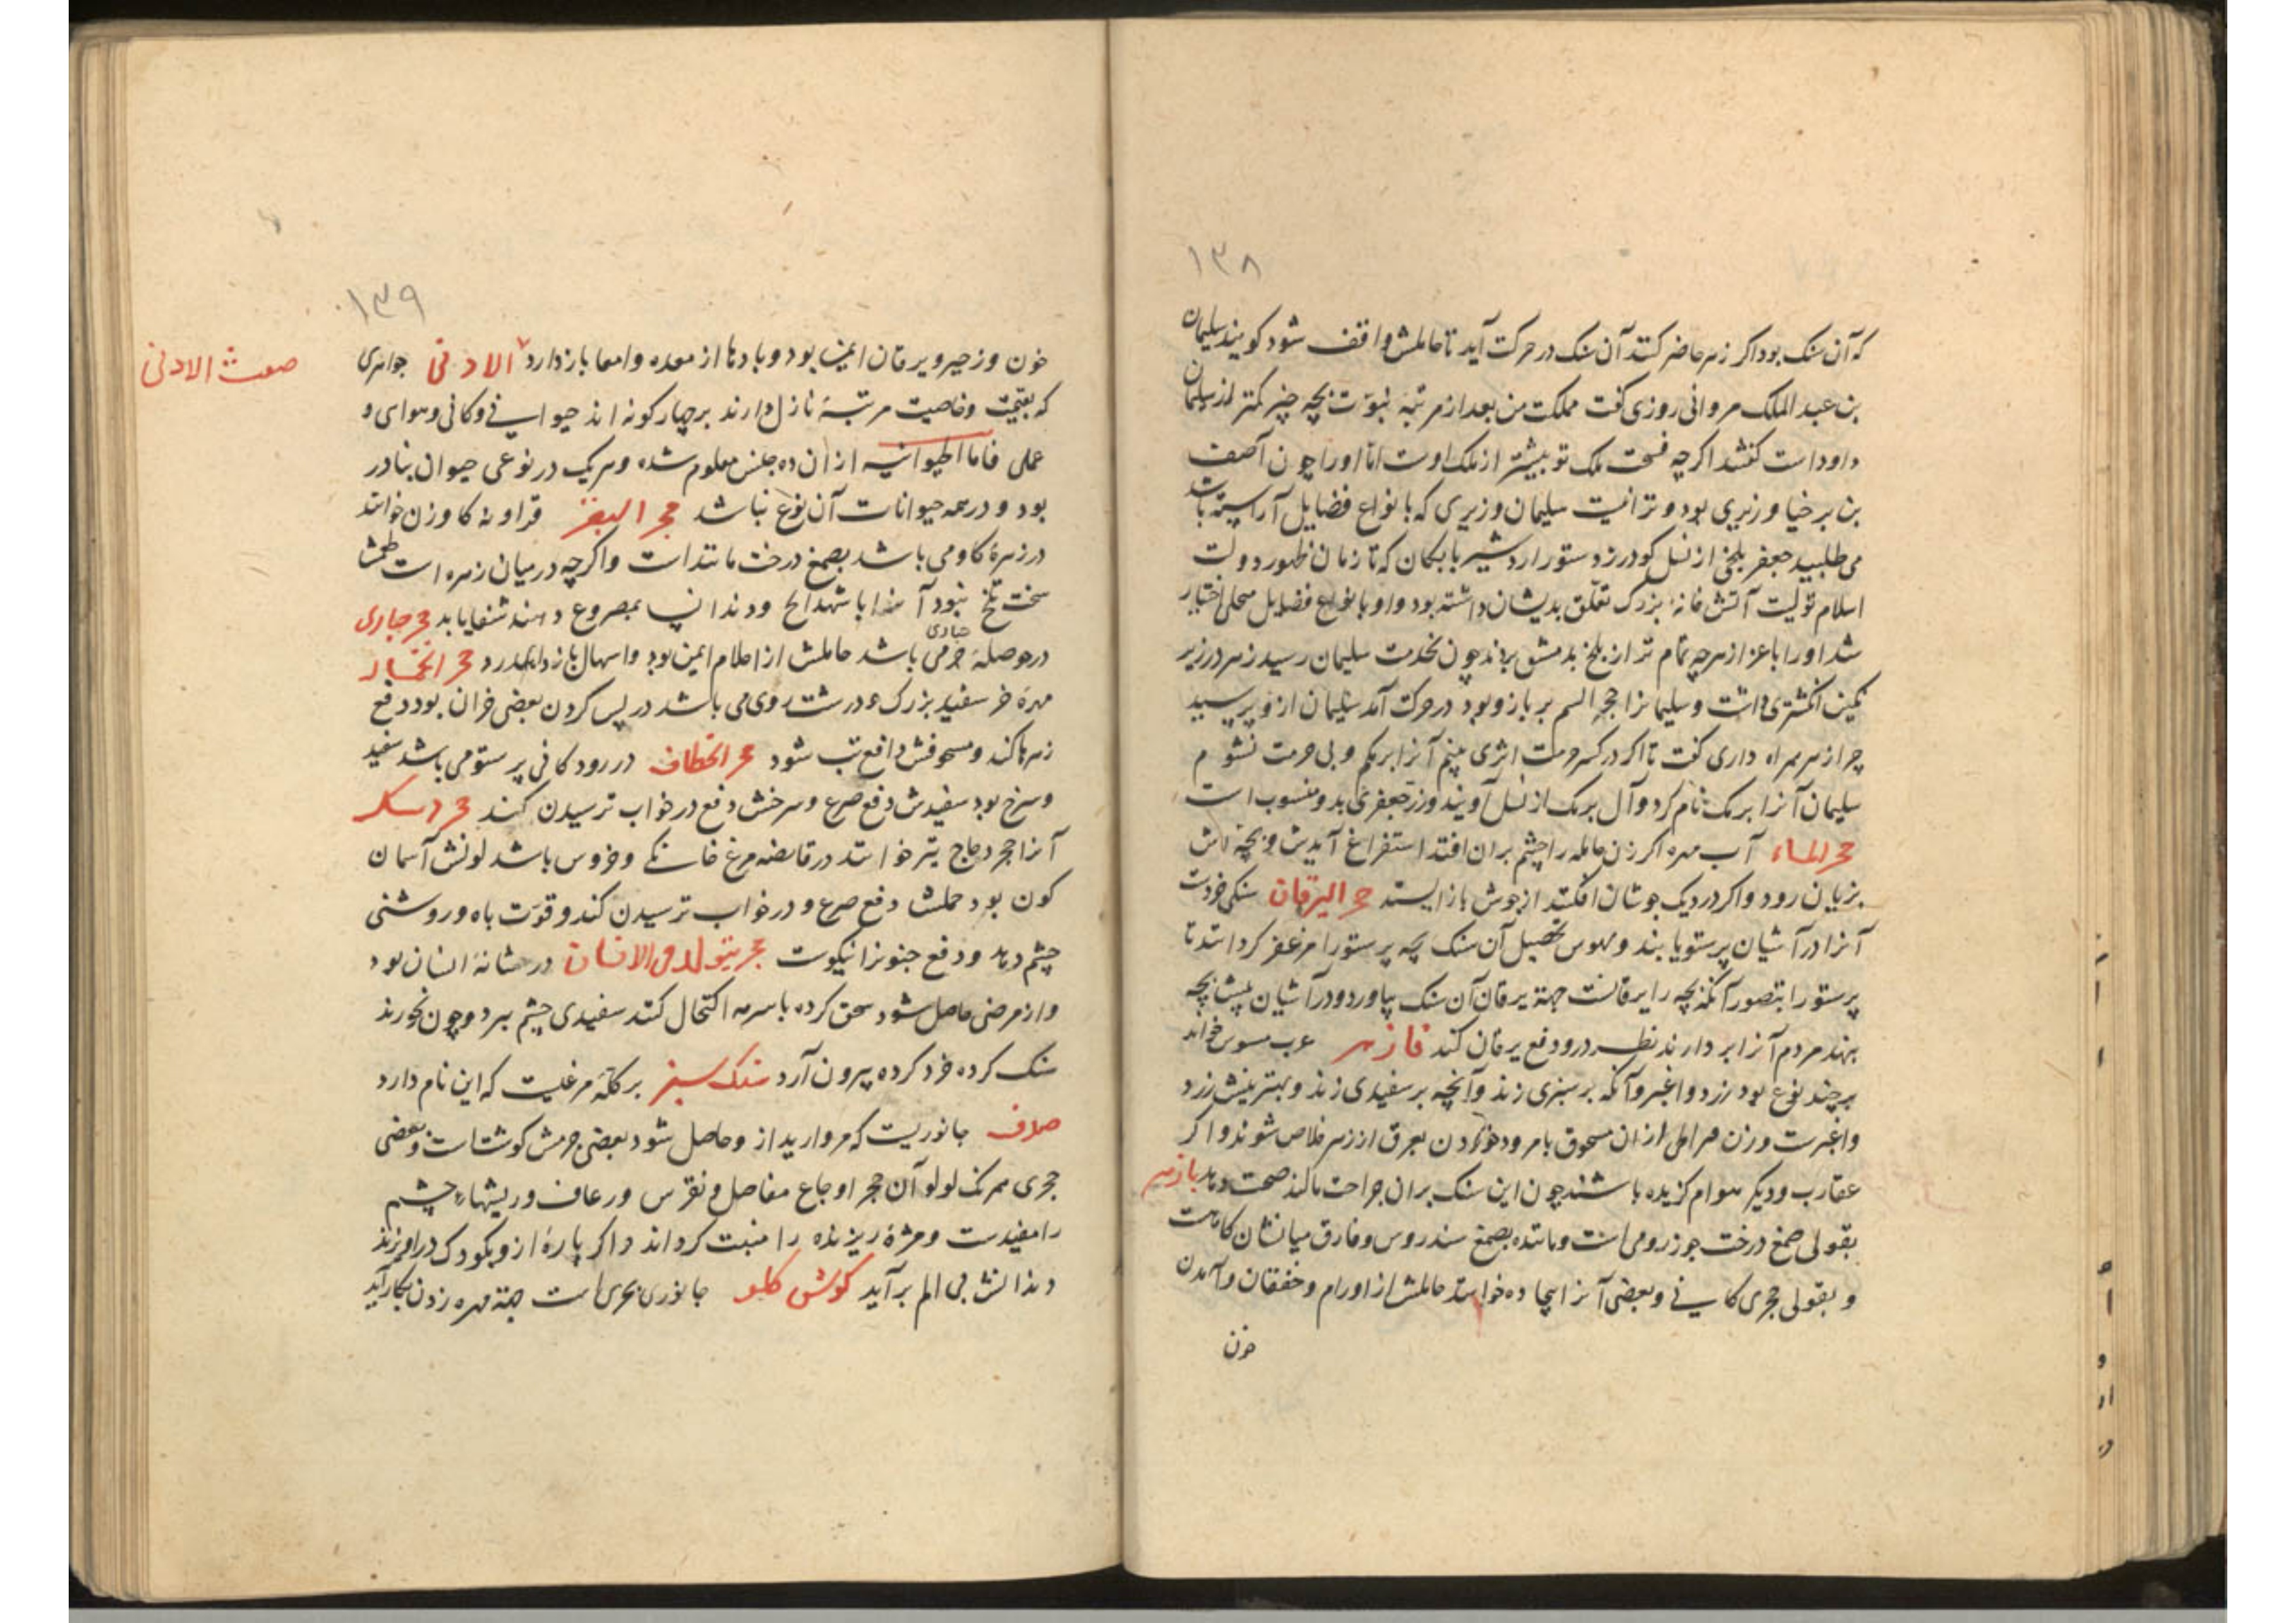 ۱۳۸
که آن سنک بود اکر زهر حاضر کنند آن سنک در حرکت آید تا حاملش واقف شود کویند سلیمان
بن عبد الملک مروانی روزی کفت مملکت من بعد از مرتبهٔ نبوّت بچه چیز کمتر از سلیمان
داود است کفتند اکرچه فسحت ملک تو بیشتر از ملک اوست امّا او را چون آصف
بن برخیا وزیری بود و ترا نیست سلیمان وزیری که بانواع فضایل آراسته باشد
می طلبید جعفر بلخی از نسل کودرز دستور اردشیر بابکان که تا زمان ظهور دولت
اسلام تولیت آتش خانهٔ بزرک تعلّق بدیشان داشته بود و او بانواع فضایل محلی اختیار
شد او را باعزاز هرچه تمام تر از بلخ بدمشق بردند چون بخدمت سلیمان رسید زهر در زیر
نکین انکشتری داشت و سلیمانرا حجر السم بر بازو بود در حرکت آمد سلیمان ازو پرسید
چرا زهر همراه داری کفت تا اکر در کسر حرمت اثری بینم آنرا برمکم و بی حرمت نشوم
سلیمان آنرا برمک نام کرد و آل برمک از نسل آویند وزر جعفری بدو منسوب است
حجر الماء آب مهره اکر زن حامله را چشم بران افتد استفراغ آیدش و بچه اش
بزیان رود و اکر در دیک جوشان افکنند از جوش باز ایستد حجر الیرقان سنکی خردست
آنرا در آشیان پرستو یابند و بهوس تحصیل آن سنک بچه پرستو را مزعفر کردانند تا
پرستو را بتصور آنکه بچه را یرقانست جهة یرقان آن سنک بیاورد و در آشیان پیش بچه
بنهد مردم آنرا بردارند نظر درو دفع یرقان کند فازهر عرب مسوس خواند
بر چند نوع بود زرد و اغبر و آنکه بر سبزی زند و آنچه بر سفیدی زند و بهترینش زرد
و اغبرست وزن از ان مسحوق با مرود خوردن بعرق از زهر خلاص شوند و اکر
عقارب و دیکر هوام کزیده باشند چون این سنک بران جراحت مالند صحت دهد بازهر
بقولی صمغ درخت جوز رومی است و ماننده بصمغ سندروس و فارق میانشان کاهست
و بقولی حجری کانی و بعضی آنرا خوانند حاملش از اورام و خفقان و آمدن
خون
۱۳۹
خون و زحیر و یرقان ایمن بود و بادها از معده و امعا باز دارد الادنی جواهری
صفت الادنی
که بقیمت و خاصیت مرتبهٔ نازل دارند بر چهار کونه اند حیوانی و کانی و هوای و
عملی فاما الحیوانیه از ان ده جنس معلوم شده و هر یک در نوعی حیوان بنادر
بود و در همه حیوانات آن نوع نباشد حجر البقر قراونه کاوزن خوانند
در زهرهٔ کاو می باشد بصمغ درخت مانندست و اکرچه در میان زهره است طعمش
سخت تلخ نبود آنرا با شهدانج و دندانپ بمصروع دهند شفا یابد حجر حباری
در حوصلهٔ حباری می باشد حاملش از احلام ایمن بود و اسهال باز دارد حجر الخیال
مهره خر سفید بزرک و درشت روی می باشد در پس کردن بعضی خران بود دفع
زهرها کند و مسحوقش دافع تب شود حجر الخطاف در رودکانی پرستو می باشد سفید
و سرخ بود سفیدش دفع صرع و سرخش دفع در خواب ترسیدن کند حجر
آنرا حجر دجاج نیز خوانند در قانصه مرغ خانکی و خروس باشد لونش آسمان
کون بود حملش دفع صرع و در خواب ترسیدن کند و قوّت باه و روشنی
چشم دهد و دفع جنونرا نیکوست حجر یتولد فی الانسان در مثانهٔ انسان بود
و از مرضی حاصل شود سحق کرده با سرمه اکتحال کنند سفیدی چشم ببرد و چون بخورند
سنک کرده خرد کرده بیرون آرد سنک سبز بر کلّهٔ مرغیست که این نام دارد
صدف جانوریست که مروارید از و حاصل شود بعضی جرمش کوشت است و بعضی
حجری همرنک لولو آن حجر اوجاع مفاصل و نقرس و رعاف و ریشهاء چشم
را مفیدست و مژهٔ ریزنده را منبت کرداند و اکر پارهٔ ازو بکودک درآویزند
دندانش بی الم برآید کوش جانوری بحری است جهة مهره زدن بکار آید